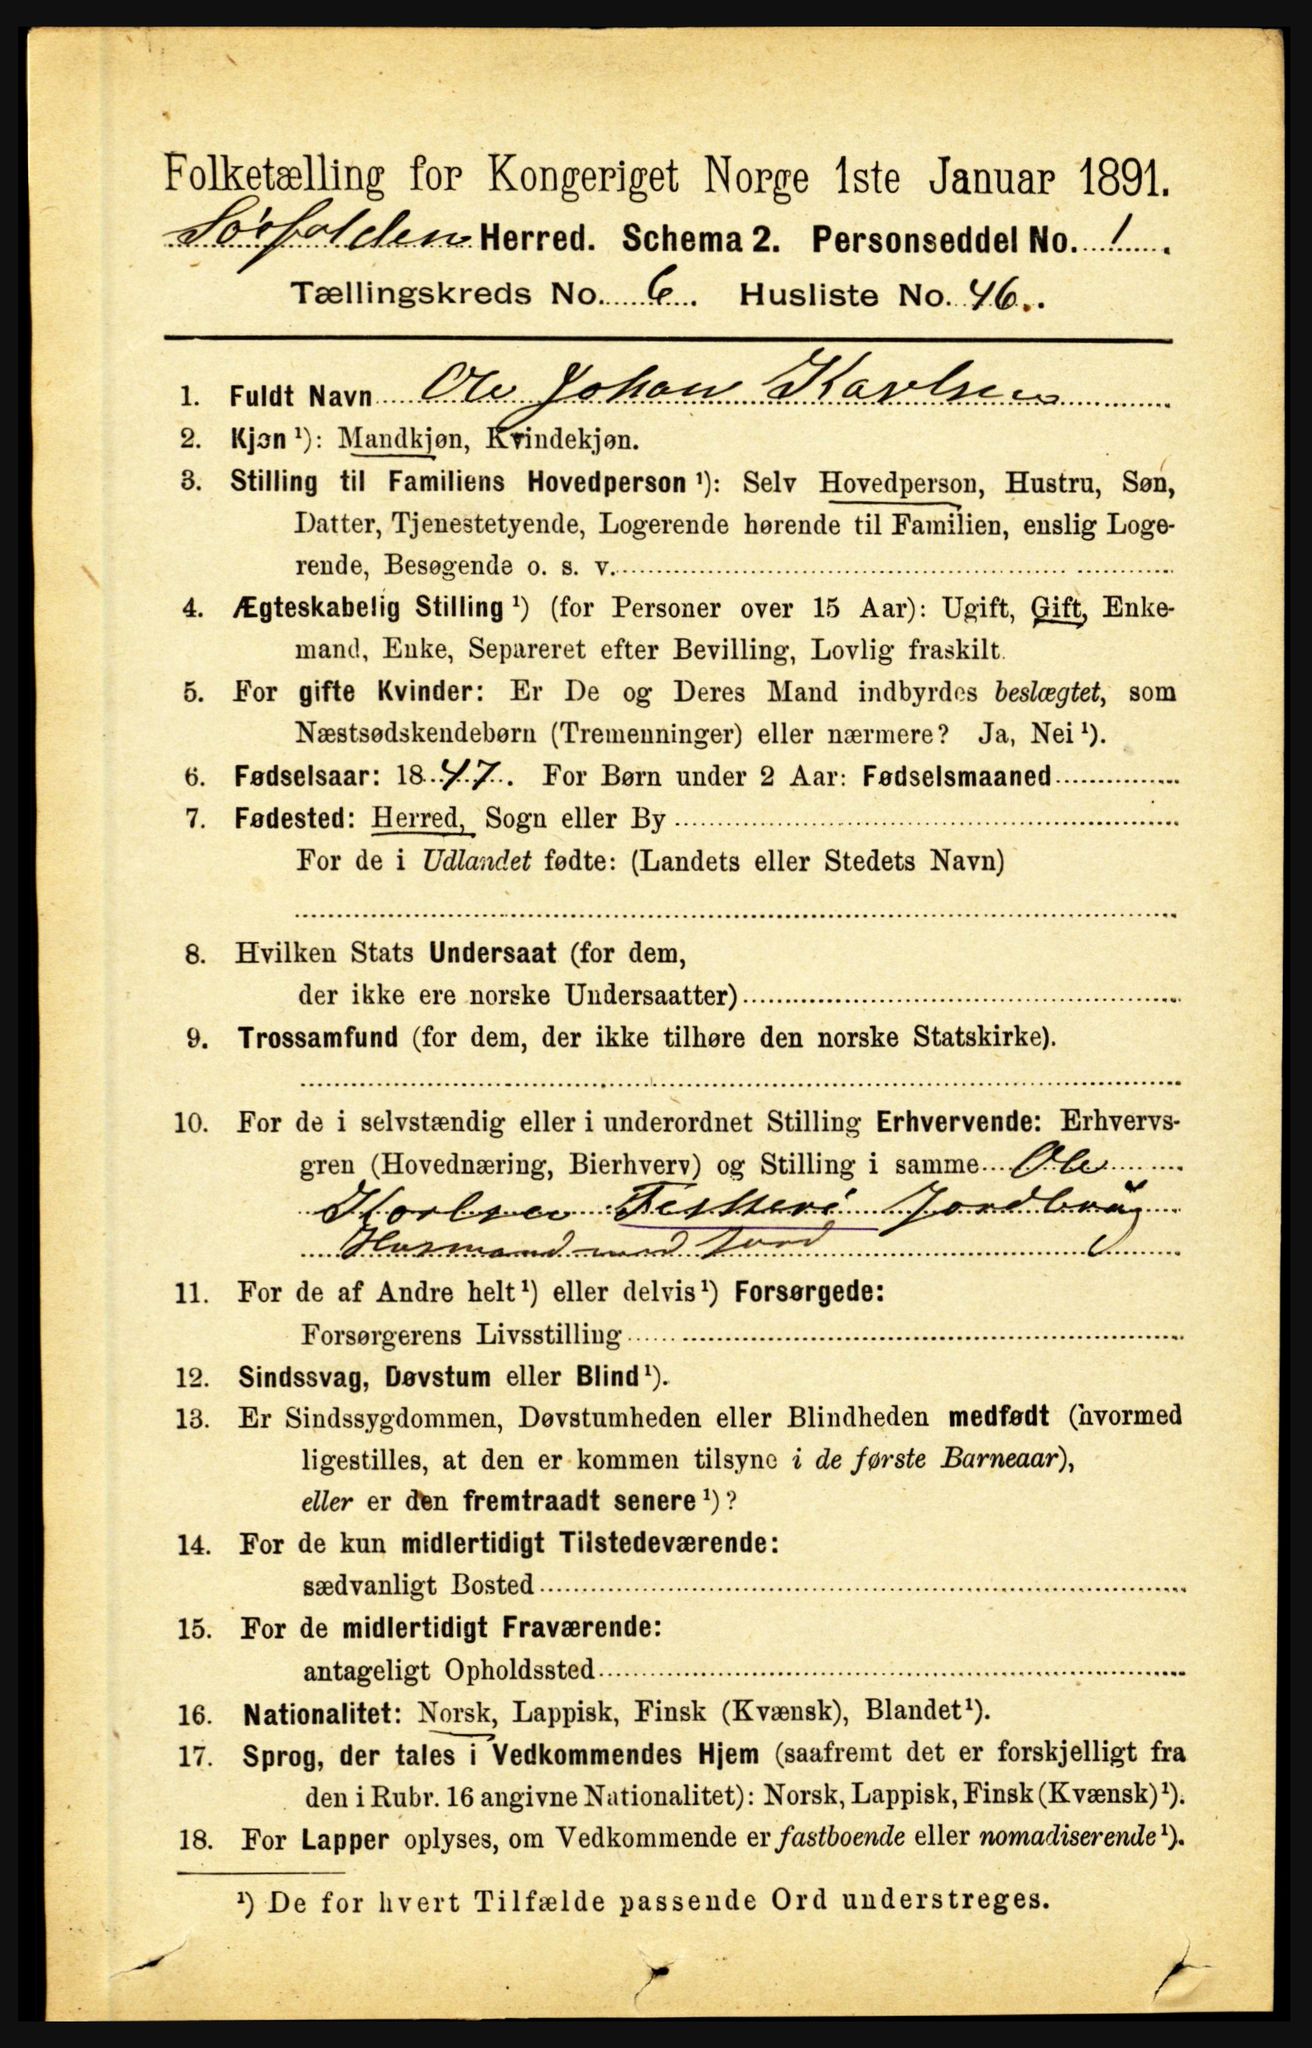 Folketælling for Kongeriget Norge 1ste Januar 1891.
Sørfolden Herred. Schema 2. Personseddel No. 1.
Tællingskreds No. 6. Husliste No. 46.
1. Fuldt Navn Ole Johan Karlsen
2. Kjøn ¹): Mandkjøn, Kvindekjøn.
3. Stilling til Familiens Hovedperson ¹): Selv Hovedperson, Hustru, Søn,
Datter, Tjenestetyende, Logerende hørende til Familien, enslig Loge-
rende, Besøgende o. s. v.
4. Ægteskabelig Stilling ¹) (for Personer over 15 Aar): Ugift, Gift, Enke-
mand, Enke, Separeret efter Bevilling, Lovlig fraskilt.
5. For gifte Kvinder: Er De og Deres Mand indbyrdes beslægtet, som
Næstsødskendebørn (Tremenninger) eller nærmere? Ja, Nei ¹).
6. Fødselsaar: 1847. For Børn under 2 Aar: Fødselsmaaned
7. Fødested: Herred, Sogn eller By
For de i Udlandet fødte: (Landets eller Stedets Navn)
8. Hvilken Stats Undersaat (for dem,
der ikke ere norske Undersaatter)
9. Trossamfund (for dem, der ikke tilhøre den norske Statskirke).
10. For de i selvstændig eller i underordnet Stilling Erhvervende: Erhvervs-
gren (Hovednæring, Bierhverv) og Stilling i samme Ole
Karlsen Fiskeri Jordbrug
Husmand med Jord
11. For de af Andre helt ¹) eller delvis ¹) Forsørgede:
Forsørgerens Livsstilling
12. Sindssvag, Døvstum eller Blind ¹).
13. Er Sindssygdommen, Døvstumheden eller Blindheden medfødt (hvormed
ligestilles, at den er kommen tilsyne i de første Barneaar),
eller er den fremtraadt senere ¹)?
14. For de kun midlertidigt Tilstedeværende:
sædvanligt Bosted
15. For de midlertidigt Fraværende:
antageligt Opholdssted
16. Nationalitet: Norsk, Lappisk, Finsk (Kvænsk), Blandet ¹).
17. Sprog, der tales i Vedkommendes Hjem (saafremt det er forskjelligt fra
den i Rubr. 16 angivne Nationalitet): Norsk, Lappisk, Finsk (Kvænsk) ¹).
18. For Lapper oplyses, om Vedkommende er fastboende eller nomadiserende ¹).
¹) De for hvert Tilfælde passende Ord understreges.